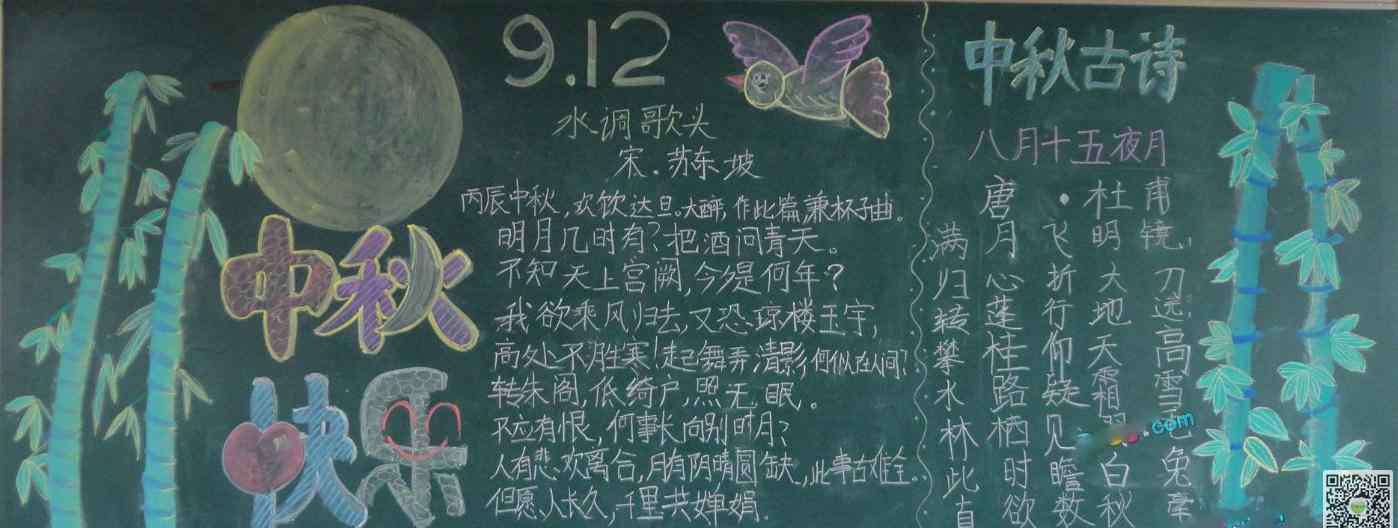 中秋
快乐
9.12
水调歌头
宋.苏东坡
丙辰中秋,欢饮达旦。大醉,作此篇兼杯子由。
明月几时有?把酒问青天。
不知天上宫阙,今夕是何年?
我欲乘风归去,又恐琼楼玉宇,
高处不胜寒!起舞弄清影何似在人间?
转朱阁,低绮户,照无眠。
不应有恨,何事长向别时月?
人有悲欢离合,月有阴晴圆缺,此事古难全.
但愿人长久,千里共婵娟.
中秋古诗
八月十五夜月
唐·杜甫
满月飞明镜,
归心折大刀
转蓬行地远
攀桂仰天高
水路疑霜雪
林栖见
.com
此时瞻白兔
直欲数秋毫